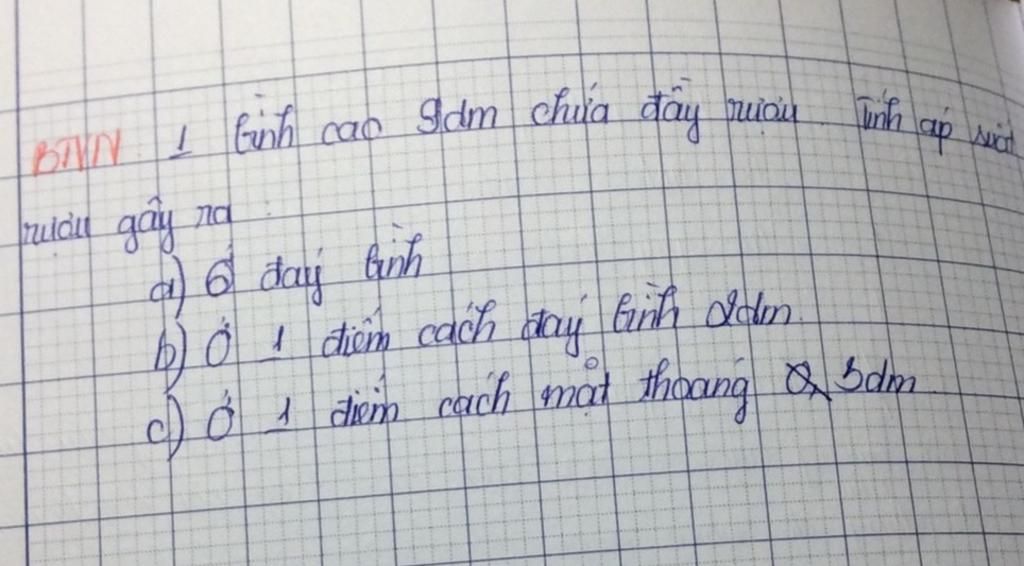 BTVN 1 bình cao 9dm chứa đầy rượu. Tính áp suất
rượu gây ra:
a) ở đáy bình
b) Ở 1 điểm cách đáy bình 2dm.
c) Ở 1 điểm cách mặt thoáng 3dm